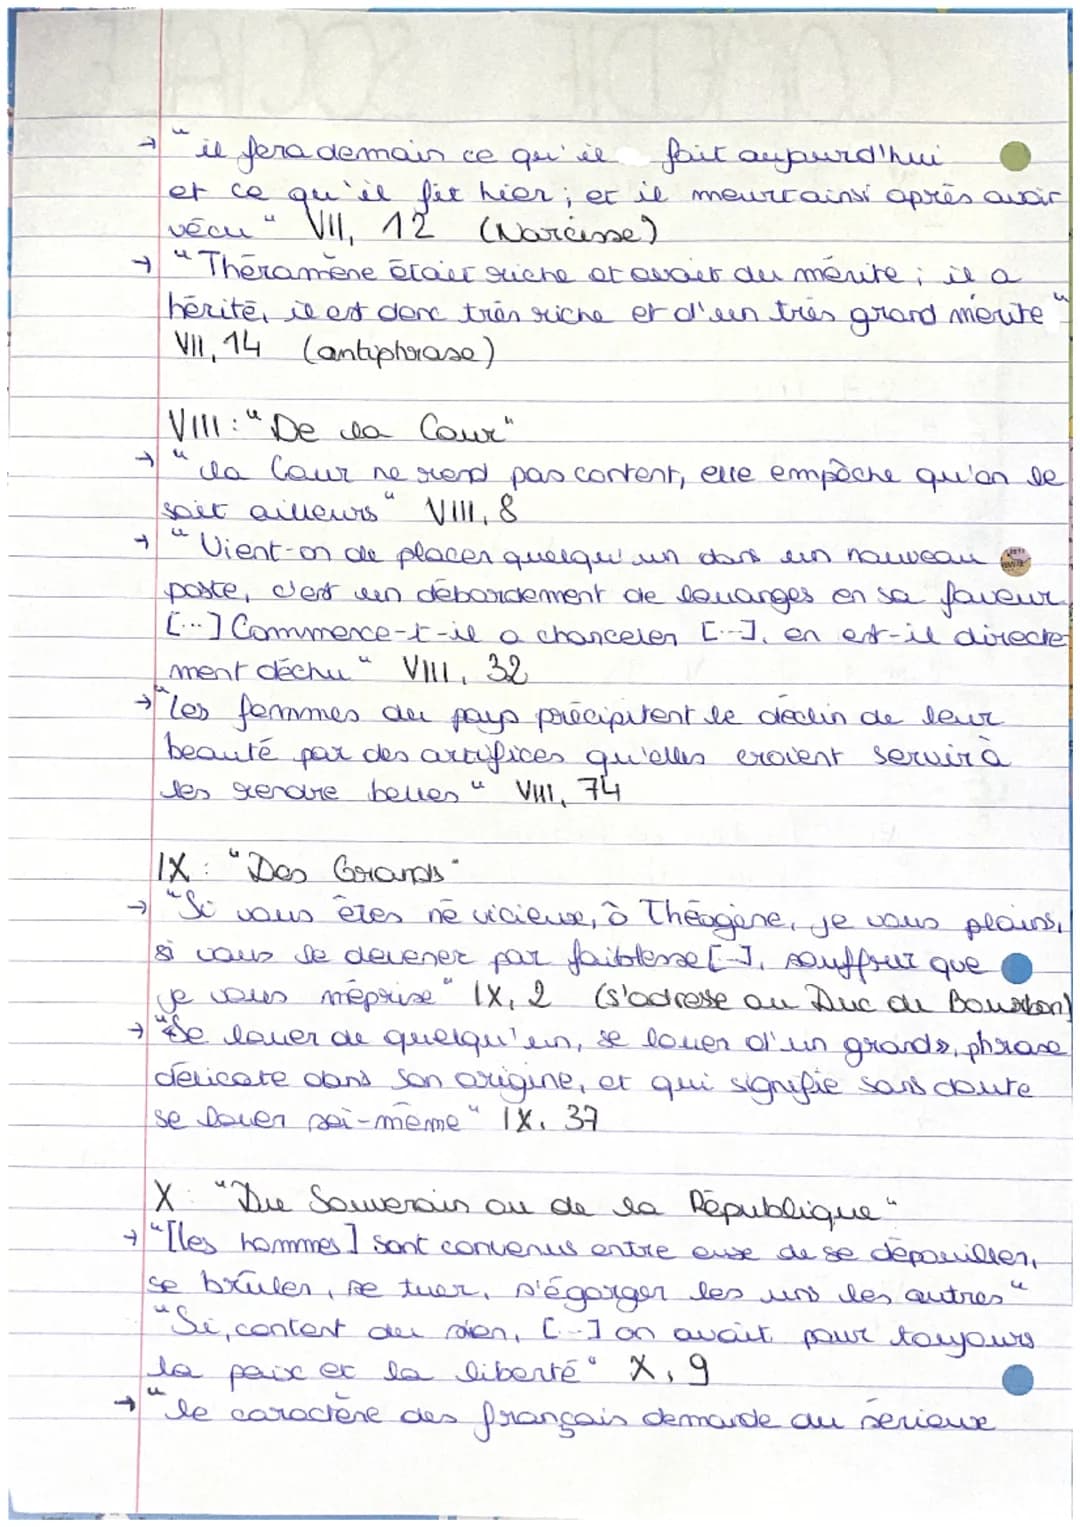 → "il fera demain ce qu'il fait aujourd'hui
et ce qu'il fit hier ; et il meurt ainsi après avoir
vécu" VII, 12 (Narcisse)
→ "Théramène était riche et avait du mérite ; il a
hérité, il est donc très riche et d'un très grand mérite"
VII, 14 (antiphrase)
VIII : "De la Cour"
→ "la Cour ne rend pas content, elle empêche qu'on le
soit ailleurs" VIII, 8
→ "Vient-on de placer quelqu'un dans un nouveau
poste, c'est un débordement de louanges en sa faveur
[...] Commence-t-il a chanceler [...], en est-il directe
ment déchu" VIII, 32
→ "les femmes du pays précipitent le déclin de leur
beauté par des artifices qu'elles croient servir à
les rendre belles" VIII, 74
IX : "Des Grands"
→ "Si vous êtes né vicieux, ô Théagène, je vous plains,
si vous le devenez par faiblesse [...], souffrez que
je vous méprise" IX, 2 (s'adresse au Duc de Bourbon)
→ "«Se louer de quelqu'un, se louer d'un grand», phrase
délicate dans son origine, et qui signifie sans doute
se louer soi-même" IX, 37
X : "Du Souverain ou de la République"
→ "[les hommes] sont convenus entre eux de se dépouiller,
se brûler, se tuer, s'égorger les uns les autres"
"Si, content du sien, [...] on avait pour toujours
la paix et la liberté" X, 9
→ "le caractère des français demande du sérieux